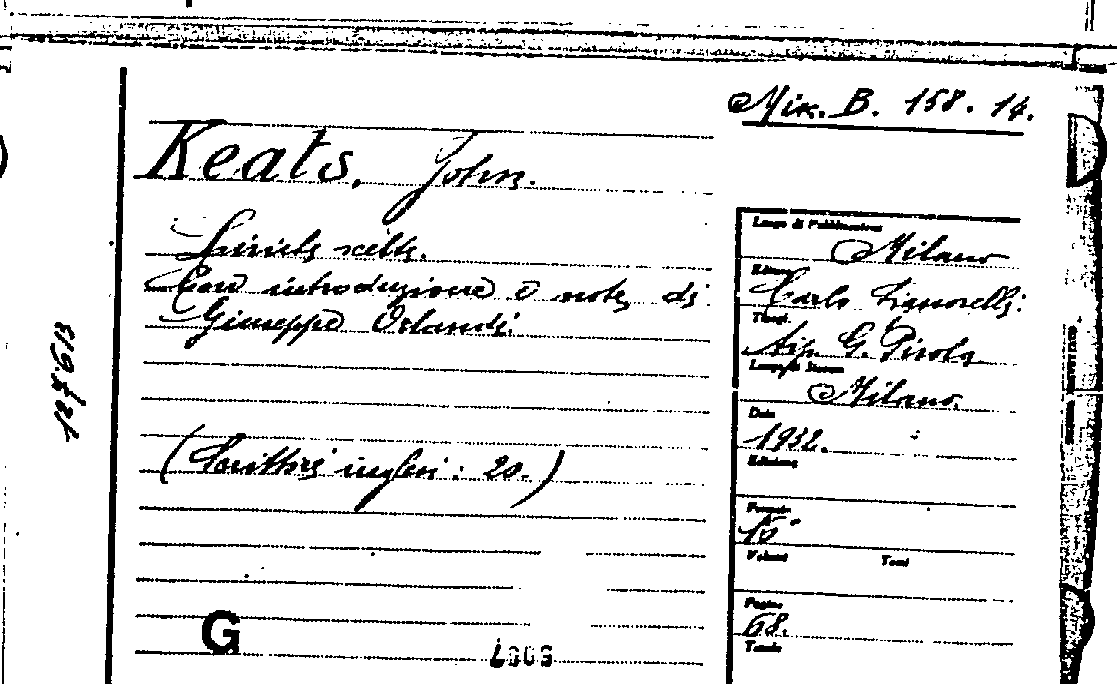 Mix. B. 158. 14.
Keats, John.
Liriche scelte.
Con introduzione e note di
Giuseppe Orlandi.
(Scrittori inglesi: 20.)
127613
G
Luogo di Pubblicazione
Milano
Editore
Carlo Signorelli.
Tipogr.
Tip. G. Pirola
Luogo di Stampa
Milano.
Data
1932.
Edizione
Formato
16°
Volumi Tomi
Pagine
68.
Tavole